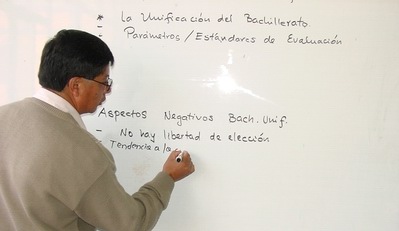 * La Unificación del Bachillerato.
- Parámetros / Estándares de Evaluación
Aspectos Negativos Bach. Unif.
- No hay libertad de elección
- Tendencia a la